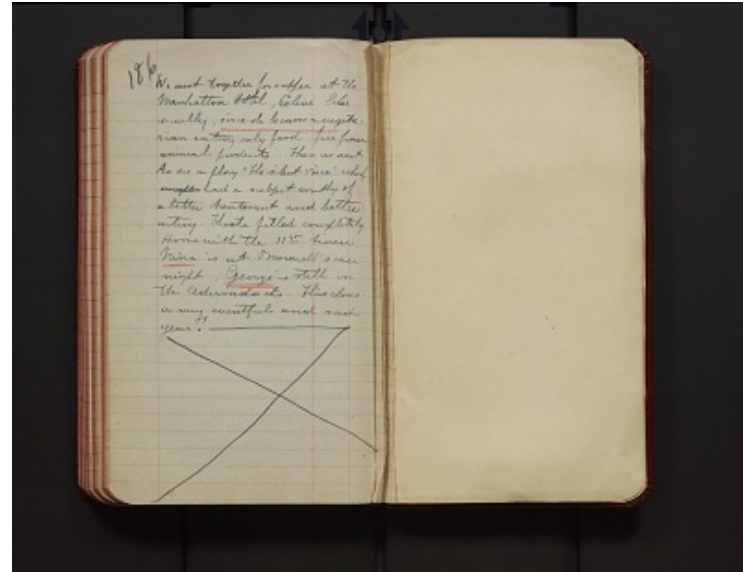 186
We went together for supper at the
Manhattan Hotel,
usually, since de became a vegeta-
rian eating only food free from
animal products. Then we went
to see a play "The silent voice" which
might had a subject worthy of
a better treatment and better
acting. Theate filled completely
Home with the 11 train
Nina is at Brunell's over
night, George is still in
the Adirondacks. This closes
a very eventful and
year.